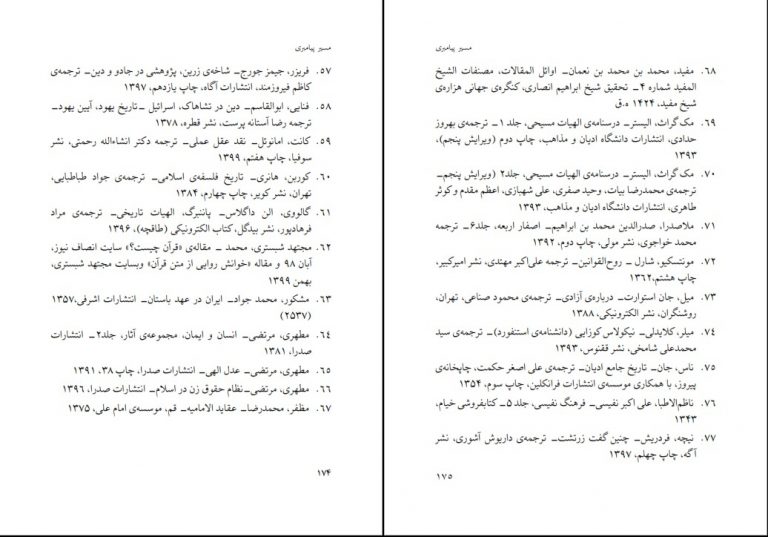 مسیر پیامبری
۵۷. فریزر، جیمز جورج_ شاخه‌ی زرین، پژوهشی در جادو و دین_ ترجمه‌ی
کاظم فیروزمند، انتشارات آگاه، چاپ یازدهم، ۱۳۹۷
۵۸. فنایی، ابوالقاسم_ دین در تشاهاک، اسرائیل _تاریخ یهود، آیین یهود_
ترجمه رضا آستانه پرست، نشر قطره، ۱۳۷۸
۵۹. کانت، امانوئل_ نقد عقل عملی_ ترجمه دکتر انشاءالله رحمتی، نشر
سوفیا، چاپ هفتم، ۱۳۹۹
۶۰. کوربن، هانری_ تاریخ فلسفه‌ی اسلامی_ ترجمه‌ی جواد طباطبایی،
تهران، نشر کویر، چاپ چهارم، ۱۳۸۴
۶۱. گالووی، الن داگلاس_ پاننبرگ، الهیات تاریخی_ ترجمه‌ی مراد
فرهادپور، نشر بیدگل، کتاب الکترونیکی (طاقچه)، ۱۳۹۶
۶۲. مجتهد شبستری، محمد _ مقاله‌ی «قرآن چیست؟» سایت انصاف نیوز،
آبان ۹۸ و مقاله «خوانش روایی از متن قرآن» وبسایت مجتهد شبستری،
بهمن ۱۳۹۹
۶۳. مشکور، محمد جواد_ ایران در عهد باستان_ انتشارات اشرفی،۱۳۵۷
(۲۵۳۷)
۶۴. مطهری، مرتضی_ انسان و ایمان، مجموعه‌ی آثار، جلد۲_ انتشارات
صدرا، ۱۳۸۱
۶۵. مطهری، مرتضی_ عدل الهی_ انتشارات صدرا، چاپ ۳۸، ۱۳۹۱
۶۶. مطهری، مرتضی_نظام حقوق زن در اسلام_ انتشارات صدرا، ۱۳۹۶
۶۷. مظفر، محمدرضا_ عقاید الامامیه_ قم، موسسه‌ی امام علی، ۱۳۷۵
۱۷۴
مسیر پیامبری
۶۸. مفید، محمد بن محمد بن نعمان_ اوائل المقالات، مصنفات الشیخ
المفید شماره ۴_ تحقیق شیخ ابراهیم انصاری، کنگره‌ی جهانی هزاره‌ی
شیخ مفید، ۱۴۲۴ ه.ق
۶۹. مک گراث، الیستر_ درسنامه‌ی الهیات مسیحی، جلد ۱_ ترجمه‌ی بهروز
حدادی، انتشارات دانشگاه ادیان و مذاهب، چاپ دوم (ویرایش پنجم)،
۱۳۹۳
۷۰. مک گراث، الیستر_ درسنامه‌ی الهیات مسیحی، جلد۲ (ویرایش پنجم_
ترجمه‌ی محمدرضا بیات، وحید صفری، علی شهبازی، اعظم مقدم و کوثر
طاهری، انتشارات دانشگاه ادیان و مذاهب، ۱۳۹۳
۷۱. ملاصدرا، صدرالدین محمد بن ابراهیم_ اصفار اربعه، جلد۶_ ترجمه
محمد خواجوی، نشر مولی، چاپ دوم، ۱۳۹۲
۷۲. مونتسکیو، شارل _ روح‌القوانین_ ترجمه علی‌اکبر مهتدی، نشر امیرکبیر،
چاپ هشتم،۱۳۶۲
۷۳. میل، جان استوارت_ درباره‌ی آزادی_ ترجمه‌ی محمود صناعی، تهران،
روشنگران، نشر الکترونیکی، ۱۳۸۸
۷۴. میلر، کلایدلی_ نیکولاس کوزایی (دانشنامه‌ی استنفورد)_ ترجمه‌ی سید
محمدعلی شامخی، نشر ققنوس، ۱۳۹۳
۷۵. ناس، جان_ تاریخ جامع ادیان_ ترجمه‌ی علی اصغر حکمت، چاپخانه‌ی
پیروز، با همکاری موسسه‌ی انتشارات فرانکلین، چاپ سوم، ۱۳۵۴
۷۶. ناظم‌الاطبا، علی اکبر نفیسی_ فرهنگ نفیسی، جلد ۵_ کتابفروشی خیام،
۱۳۴۳
۷۷. نیچه، فردریش_ چنین گفت زرتشت_ ترجمه‌ی داریوش آشوری، نشر
آگه، چاپ چهلم، ۱۳۹۷
۱۷۵